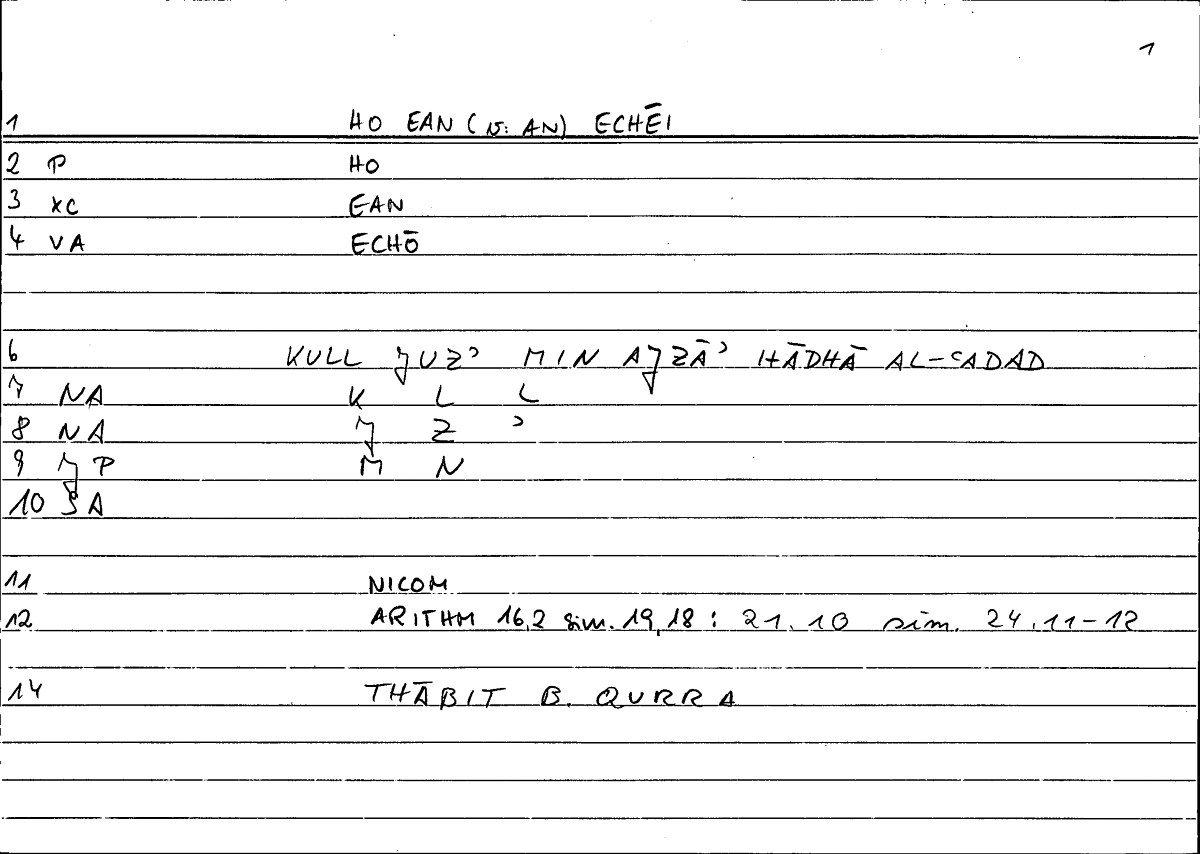 1
1 HO EAN (v: AN) ECHĒI
2 P HO
3 XC EAN
4 VA ECHŌ
6 KULL JUZʾ MIN AJZĀʾ HĀDHĀ AL-ʿADAD
7 NA K L L
8 NA J Z ʾ
9 JP M N
10 SA
11 NICOM
12 ARITHM 16,2 sim. 19,18 : 21.10 sim. 24.11-12
14 THĀBIT B. QURRA